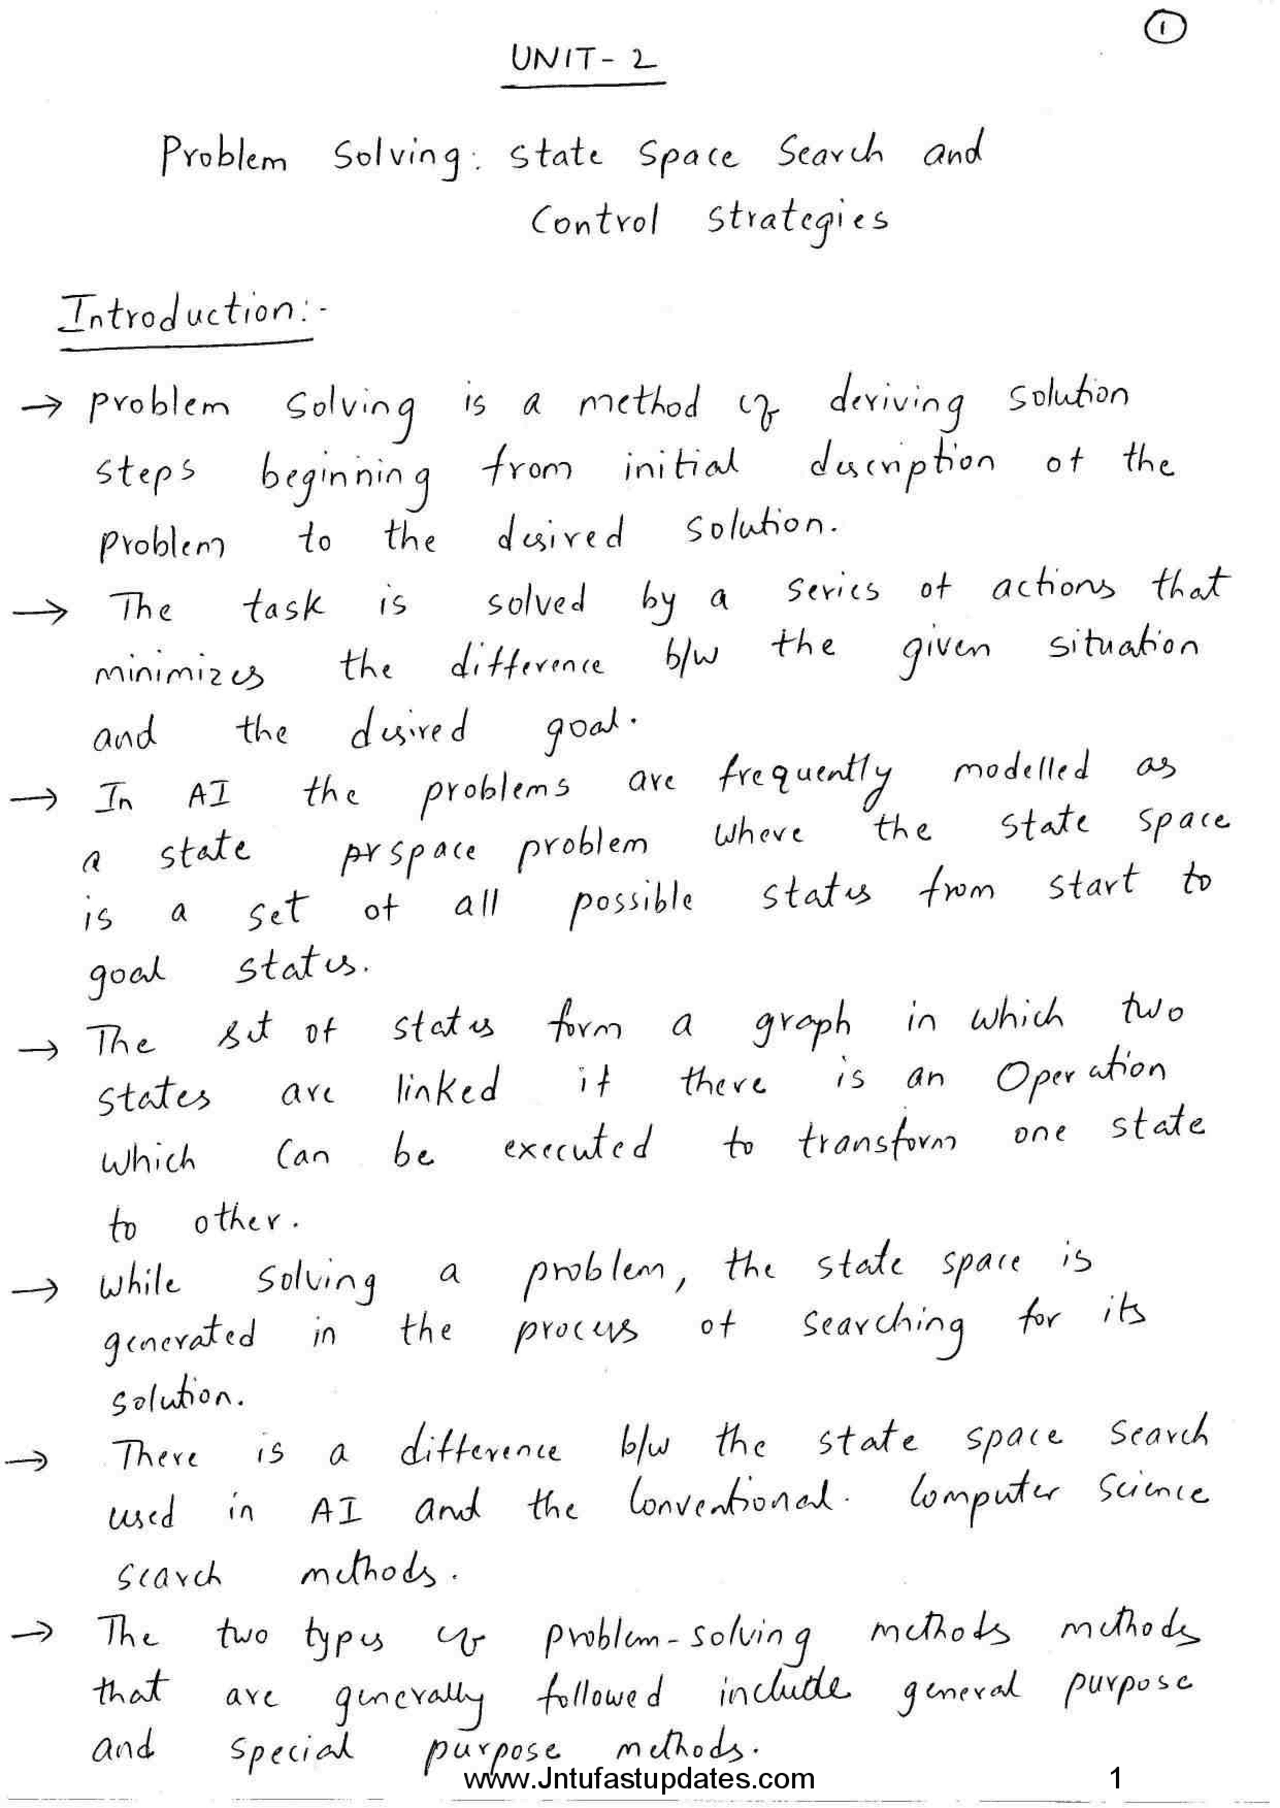 1
UNIT - 2
Problem Solving: State Space Search and
Control Strategies
Introduction:-
→ problem solving is a method of deriving solution
steps beginning from initial description of the
problem to the desired solution.
→ The task is solved by a series of actions that
minimizes the difference b/w the given situation
and the desired goal.
→ In AI the problems are frequently modelled as
a state space problem where the state space
is a set of all possible states from start to
goal states.
→ The set of states form a graph in which two
states are linked if there is an operation
which can be executed to transform one state
to other.
→ while solving a problem, the state space is
generated in the process of searching for its
solution.
→ There is a difference b/w the state space search
used in AI and the conventional. Computer Science
search methods.
→ The two types of problem-solving methods methods
that are generally followed include general purpose
and special purpose methods.
www.Jntufastupdates.com 1